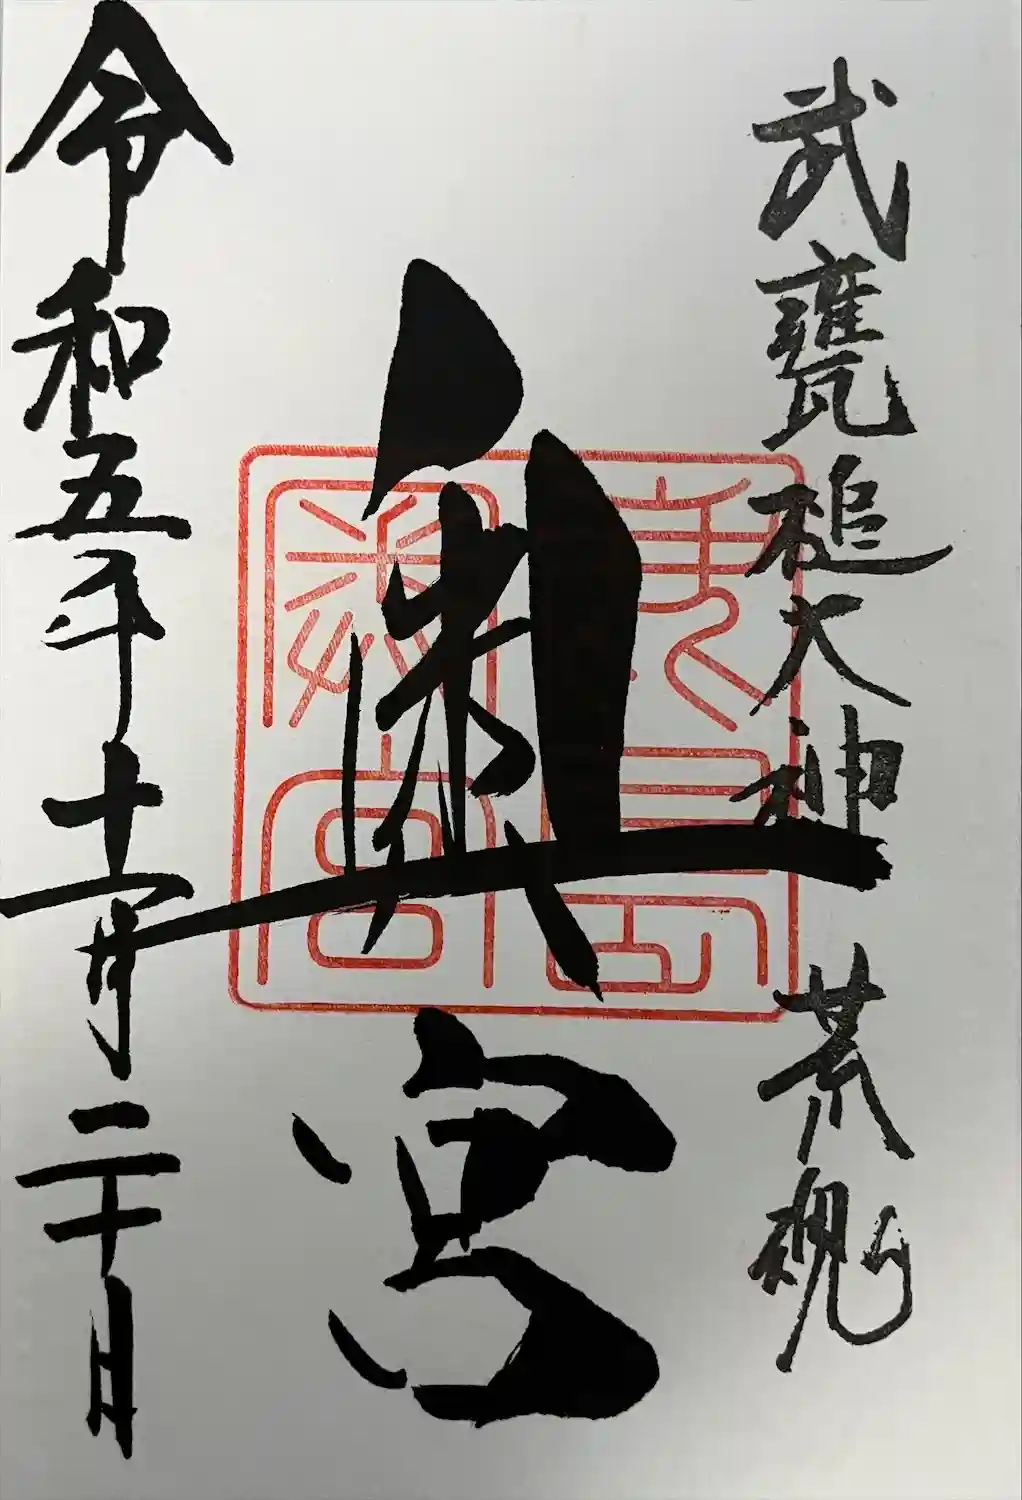 武甕槌大神 荒魂
奥宮
鹿島
奥宮
令和五年十一月二十日